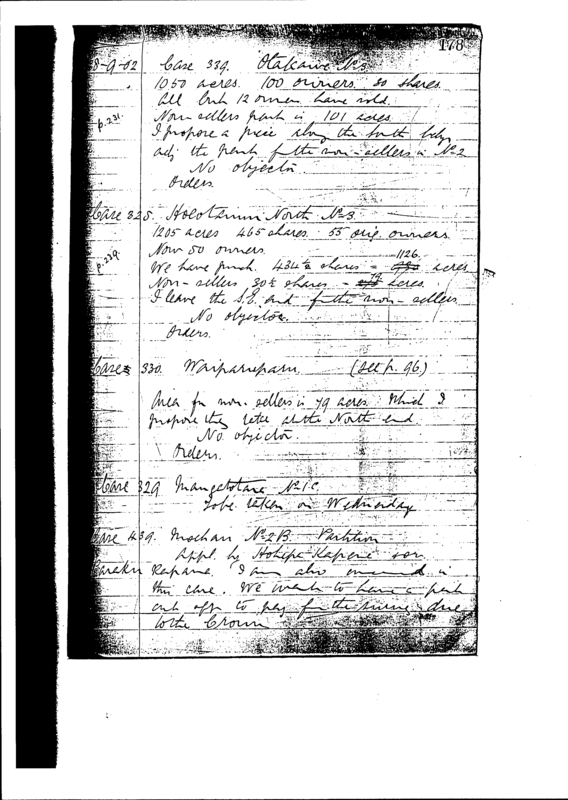 178
8-9-02 Case 339. Otakawe No 3
1050 acres. 100 owners. 80 shares.
All but 12 owners have sold.
p.231. Non-sellers part is 101 acres
I propose a piece along the South bdy
adj the part for the non-sellers in No 2
No objector.
Orders.
Case 325. North No 3.
1205 acres 465 shares. 55 orig. owners.
Now 50 owners.
p.229. 1126.
We have purch. 434½ shares = acres
Non-sellers 30½ shares = 79 acres.
I leave the S.E. end for the non-sellers
No objector.
Orders.
Case 330. Waiparapara (See p. 96.)
Area for non-sellers is 79 acres. Which I
propose they take at the North end.
No objector.
Orders.
Case 329 Mangatotara No 1C
To be taken on Wednesday
Case 439. No 2B. Partition
Appl. by Kapene
I am also in
this case. We want to have a part
cut off to pay for the survey due
to the Crown